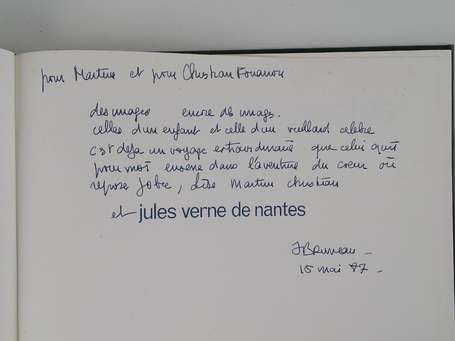 pour Martine et pour Christian
des images encore des images.
celles d'un enfant et celle d'un vieillard célèbre
c'est déjà un voyage extraordinaire que celui qui
pour moi dans l'aventure du coeur où
repose Martine Christian
et jules verne de nantes
JBruneau
15 mai 87